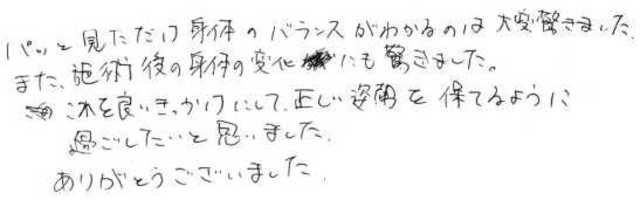 パッと見ただけ身体のバランスがわかるのは大変驚きました。
また、施術後の身体の変化にも驚きました。
これを良いきっかけにして、正しい姿勢を保てるように
過ごしたいと思いました。
ありがとうございました。